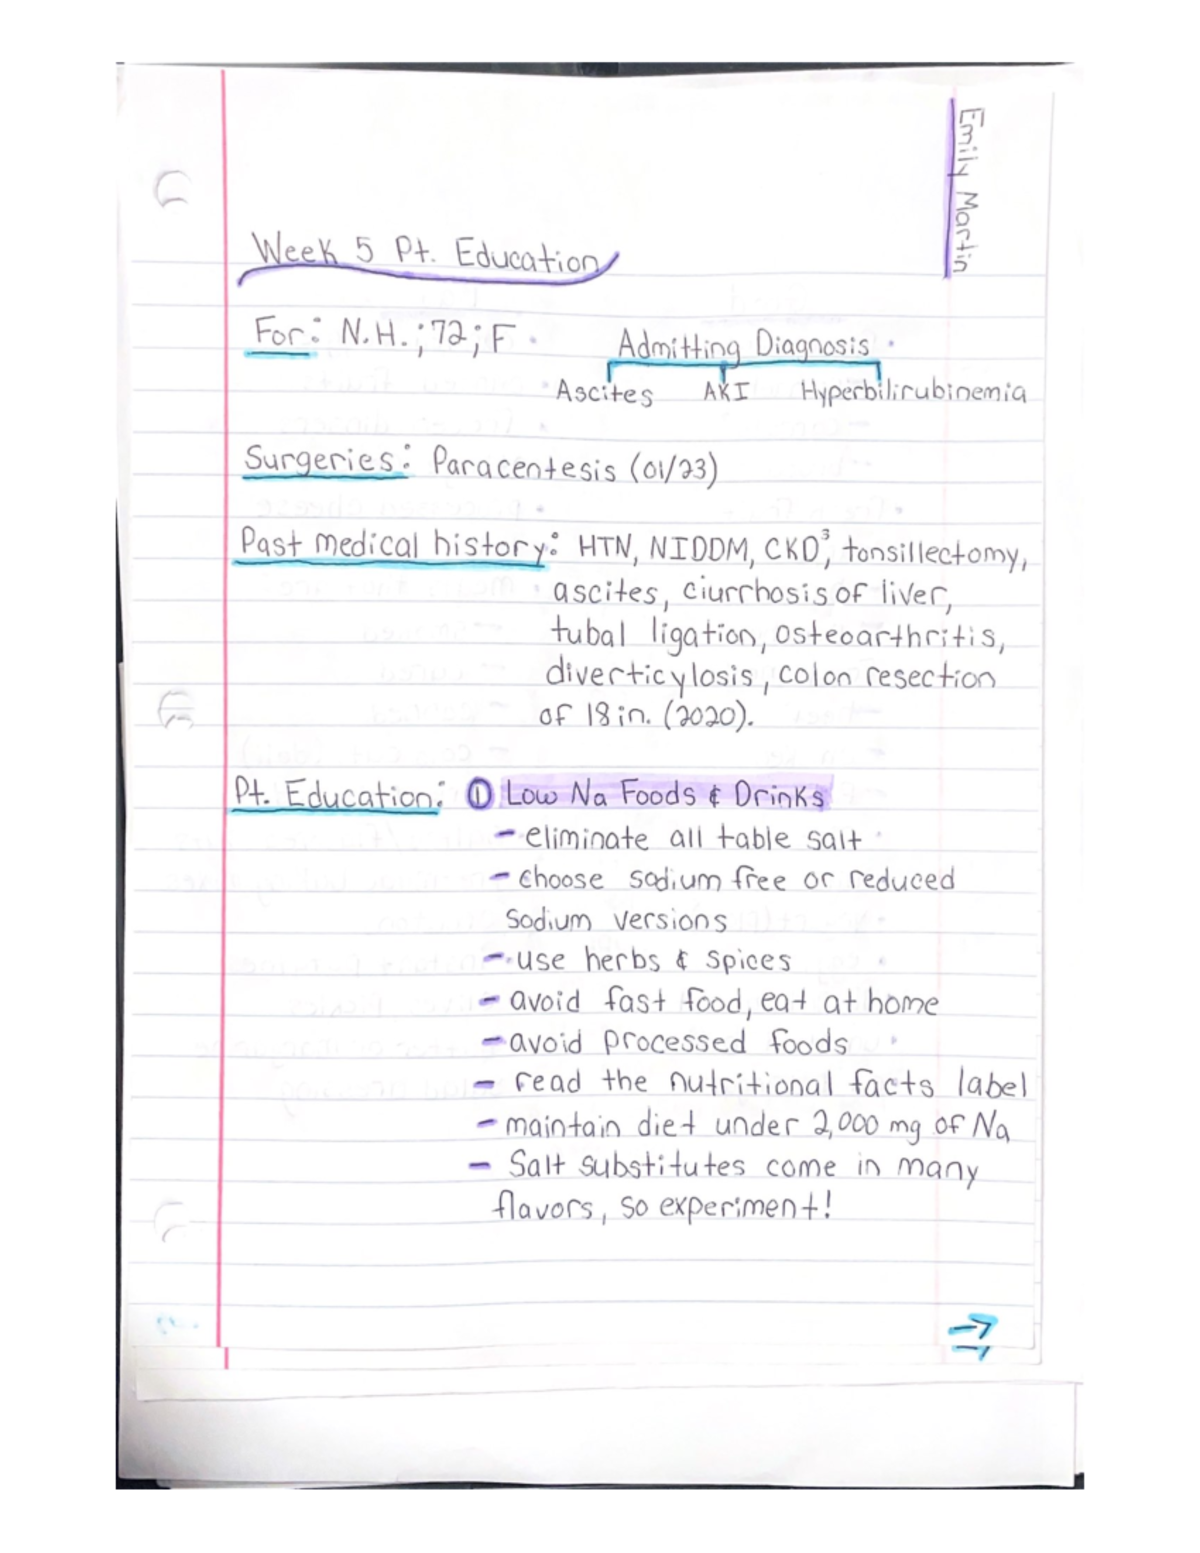 Emily Martin
Week 5 Pt. Education
For: N.H.; 72; F
Admitting Diagnosis
Ascites AKI Hyperbilirubinemia
Surgeries: Paracentesis (01/23)
Past medical history: HTN, NIDDM, CKD³, tonsillectomy,
ascites, ciurrhosis of liver,
tubal ligation, osteoarthritis,
diverticylosis, colon resection
of 18in. (2020).
Pt. Education: ① Low Na Foods & Drinks
- eliminate all table salt
- choose sodium free or reduced
sodium versions
- use herbs & spices
- avoid fast food, eat at home
- avoid processed foods
- read the nutritional facts label
- maintain diet under 2,000 mg of Na
- Salt substitutes come in many
flavors, so experiment!